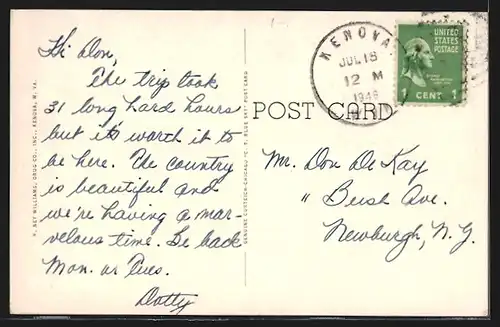 Hi Don,
The trip took
31 long hard hours
but it's worth it to
be here. The country
is beautiful and
we're having a mar-
velous time. Be back
Mon. or Tues.
Dotty
KENOVA
JUL 18
12 M
1948
W. VA.
UNITED
STATES
POSTAGE
1 CENT 1
POST CARD
Mr. Don De Kay
" Bush Ave.
Newburgh, N.Y.
H. REY WILLIAMS, DRUG CO., INC., KENOVA, W. VA.
GENUINE CURTEICH-CHICAGO "C. T. BLUE SKY" POST CARD